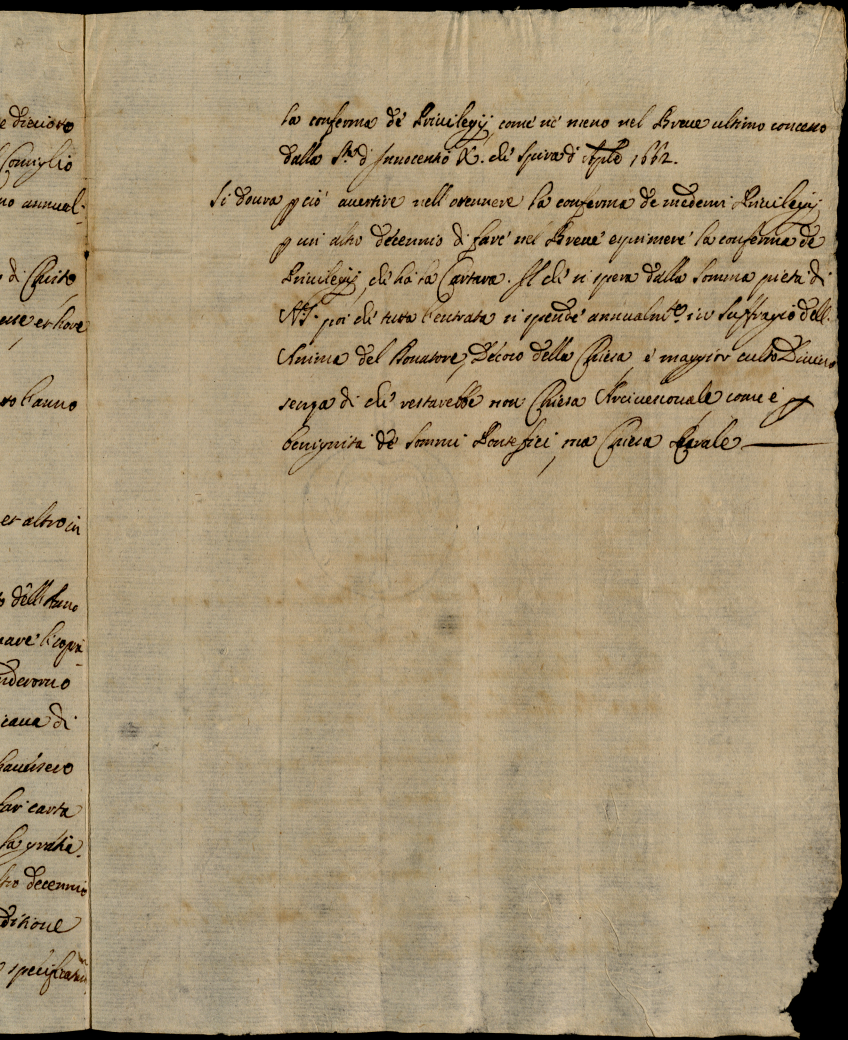 e dicioto
Consiglio
no annual:
o di Christo
ese et hore
ro l'anno
et altro in
dell'Anno
nare l'copi
nderono
icaua di
hauessero
far carta
la gratia.
tro decennio
ditione
specificati
la conferma de Priuilegij, come ne meno nel Breue ultimo concesso
dalla S.tà di Innocentio X. che spira di Aple 1662.
Si doura p ciò auertire nell'ottenere la conferma de medemi Priuilegij
p un altro decennio di fare nel Breue esprimere la conferma de
Priuilegij, che hà la Cartara. Il che si spera dalla somma pietà di
N.S. poi che tutta l'entrata si spende annualm.te in suffragio dell'
Anima del Donatore, Decoro della Chiesa, e maggior culto Diuino
senza di che restarebbe non Chiesa Arciuescouale come è p
benignità de Sommi Pontefici, ma Chiesa Rurale